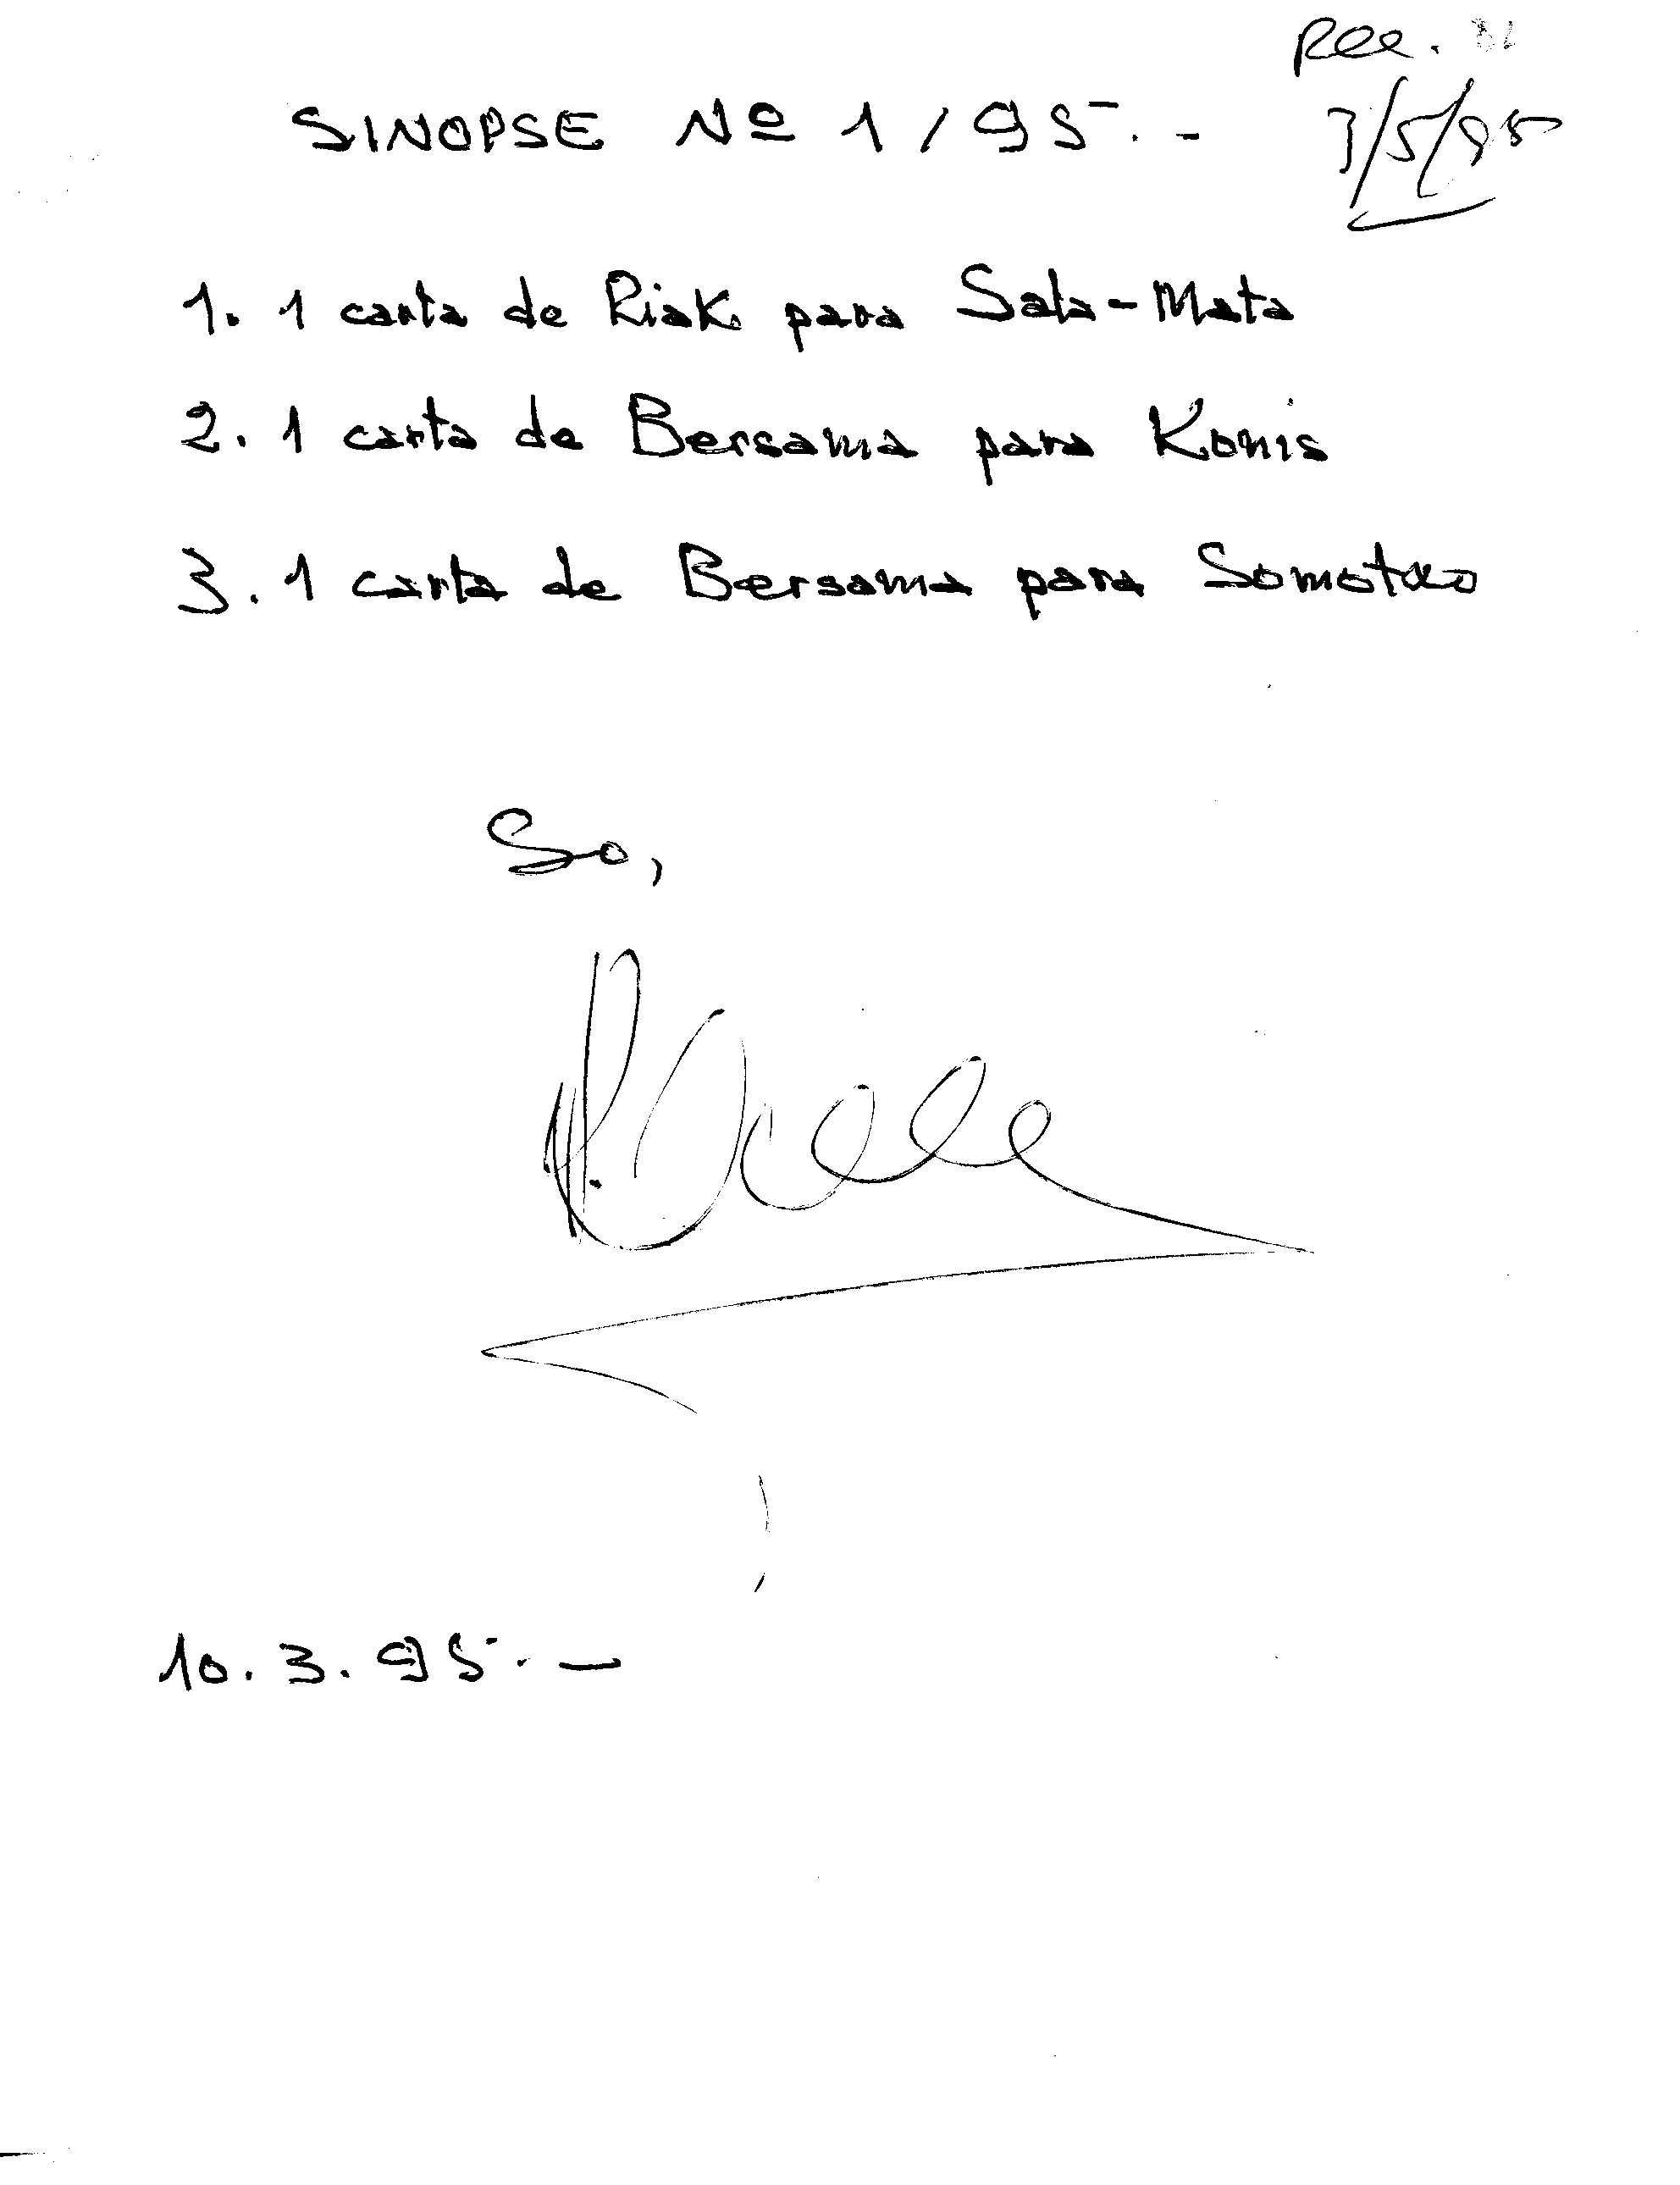 Rec.
3/5/95
SINOPSE Nº 1/95.-
1. 1 carta de Riak para Sala-Mata
2. 1 carta de Bersama para Konis
3. 1 carta de Bersama para Somotxo
So,
10.3.95.-